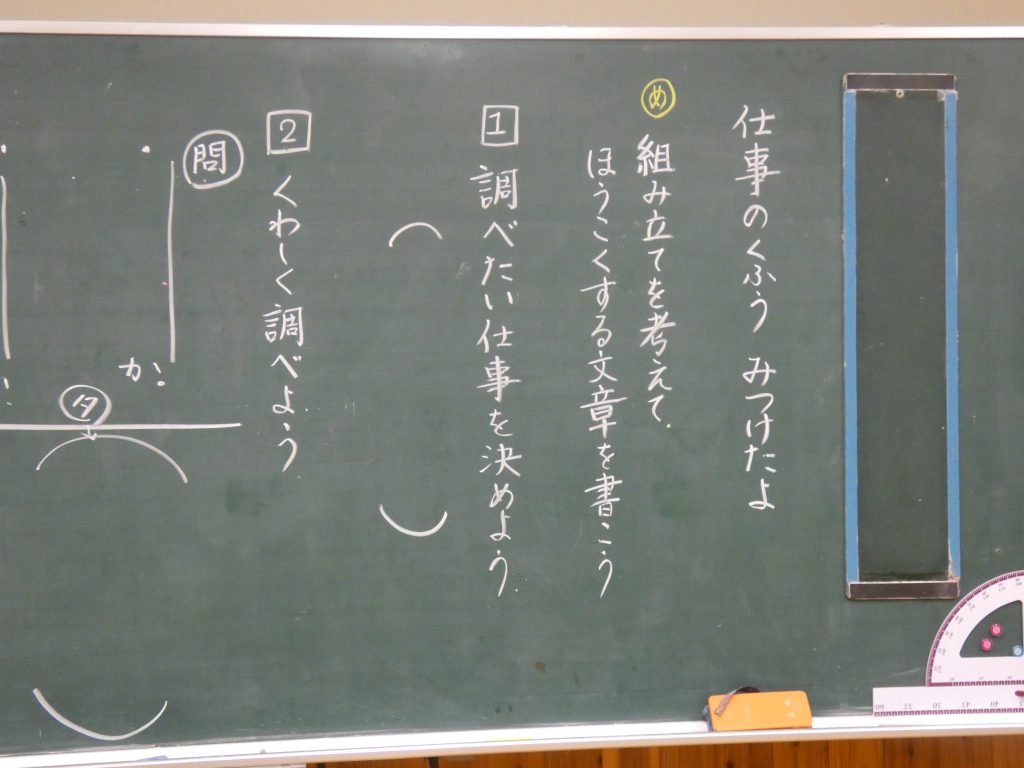 仕事のくふう みつけたよ
め 組み立てを考えて、
ほうこくする文章を書こう
1 調べたい仕事を決めよう
( )
2 くわしく調べよう
問
か。
タ
60 55 50 45 40